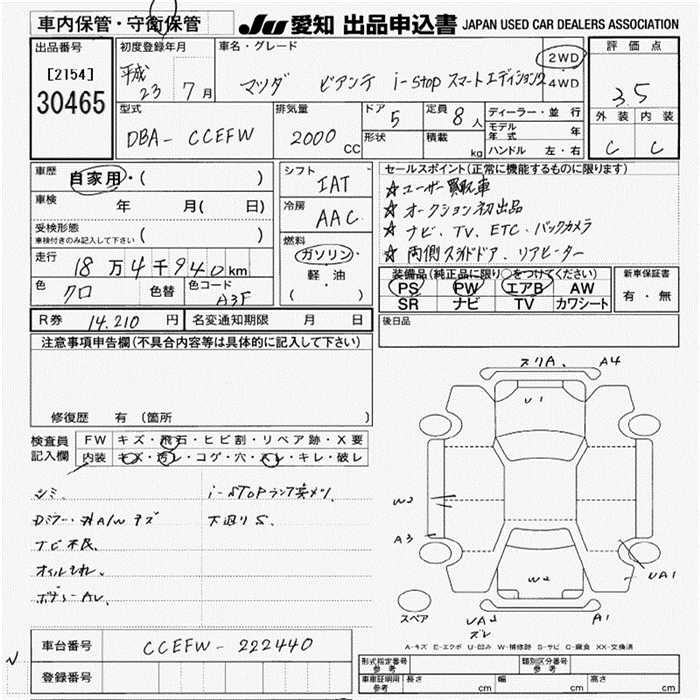 車内保管・守衛保管
JU 愛知 出品申込書 JAPAN USED CAR DEALERS ASSOCIATION
出品番号
[2154]
30465
初度登録年月
平成
23 7月
車名・グレード
マツダ ビアンテ i-stop スマートエディション2
2WD
4WD
評価点
3.5
外装 内装
C C
型式
DBA- CCEFW
排気量
2000 CC
ドア
5
形状
定員
8人
積載
kg
ディーラー・並行
モデル年式 年
ハンドル 左・右
車歴
自家用・( )
車検 年 月( 日)
受検形態
車検付きのみ記入して下さい ( )
走行
18万4千940km
色
クロ
色替
色コード
A3F
シフト
IAT
冷房
AAC
燃料
ガソリン
軽油
( )
セールスポイント(正常に機能するものに限ります)
☆ユーザー買取車
☆オークション初出品
☆ナビ、TV、ETC、バックカメラ
☆両側スライドドア、リアヒーター
装備品(純正品に限り○をつけてください)
PS PW エアB AW
SR ナビ TV カワシート
新車保証書
有・無
R券 14,210 円
名変通知期限 月 日
後日品
注意事項申告欄(不具合内容等は具体的に記入して下さい)
修復歴 有(箇所 )
検査員
記入欄
FW キズ・飛石・ヒビ割・リペア跡・X要
内装 キズ・汚レ・コゲ・穴・スレ・キレ・破レ
シミ、
i-STOPランプ点メツ、
Dミラー・外A/Wキズ
下廻りS、
ナビ不良、
オイルもれ、
ボデーAU、
スリA、 A4
U1
W2
A3
W2
UA1
スペア
UA2
ズレ
A1
A-キズ E-エクボ U-凹み W-補修跡 S-サビ C-腐食 XX-交換済
車台番号 CCEFW-222440
登録番号
形式指定番号
参考
類別区分番号
参考
車庫証明用
参考
長さ cm 幅 cm 高さ cm